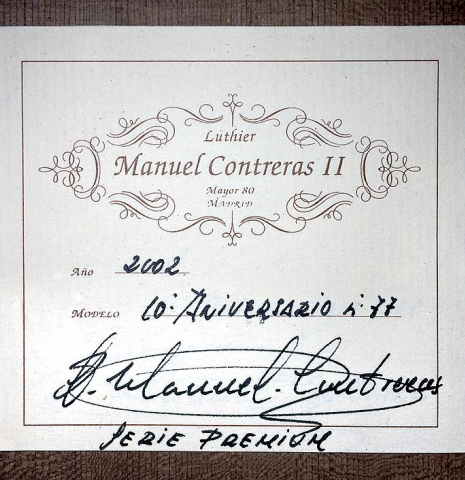 Luthier
Manuel Contreras II
Mayor 80
MADRID
Año 2002
MODELO 10º ANIVERSARIO nº 77
Manuel Contreras
SERIE PREMIUM